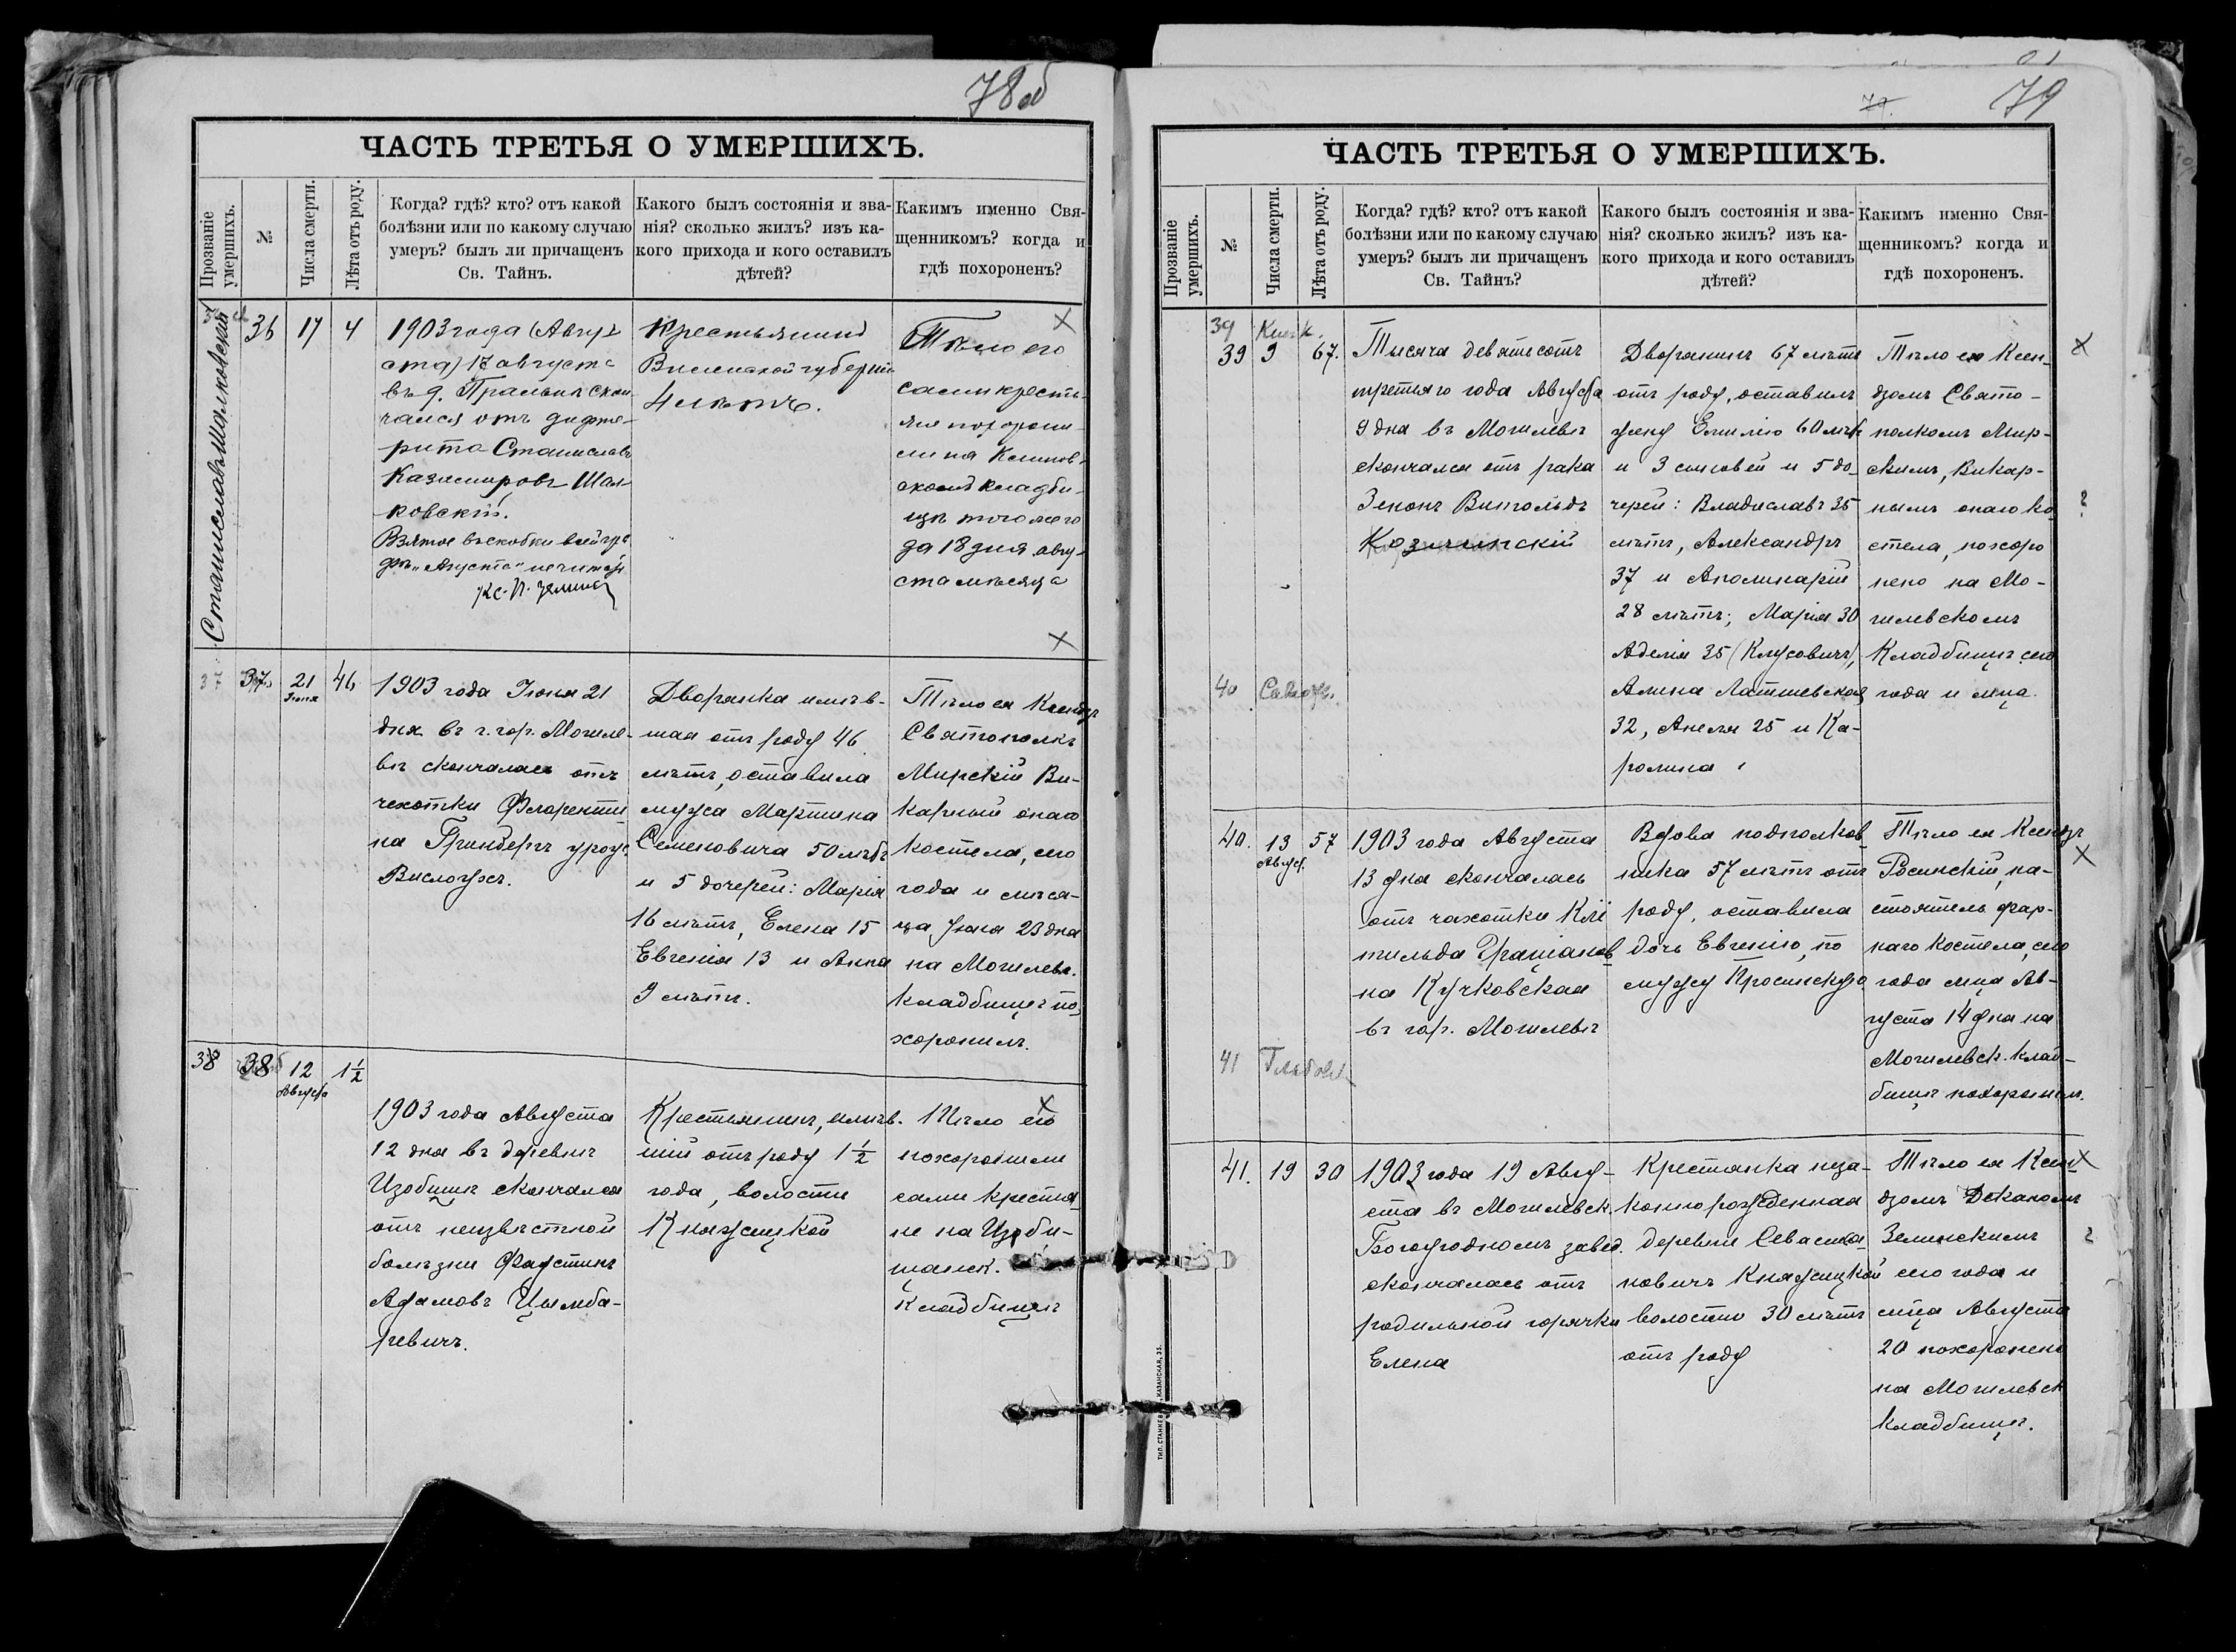 78об
ЧАСТЬ ТРЕТЬЯ О УМЕРШИХЪ.
Прозваніе умершихъ.
№
Числа смерти.
Лѣта отъ роду.
Когда? гдѣ? кто? отъ какой
болѣзни или по какому случаю
умеръ? былъ ли причащенъ
Св. Тайнъ.
Какого былъ состоянія и зва-
нія? сколько жилъ? изъ ка-
кого прихода и кого оставилъ
дѣтей?
Каким именно Свя-
щенникомъ? когда и
гдѣ похороненъ?
Станиславъ Шалковскій
36 17 4
1903 года (Авгу-
ста) 17 августа
въ д. скон-
чался отъ дифте-
рита Станиславъ
Казимировъ Шал-
ковскій.
Взятое въ скобки
"Августа" не читать
Кс. П.
Крестьянинъ
Виленской губерніи
4 лѣтъ.
Тѣло его
сами кресть-
яне похорони-
ли на
скомъ кладби-
щѣ того же го
да 18 дня авгу-
ста мѣсяца
37 37 21 46
Іюня
1903 года Іюня 21
дня въ г. гор. Могиле-
вѣ скончалась отъ
чахотки Флоренти
на Гринберъ урож.
Вислоухъ.
Дворянка имѣв-
шая отъ роду 46
лѣтъ, оставила
мужа Мартина
Семеновича 50 лѣтъ
и 5 дочерей: Марія
16 лѣтъ, Елена 15
Евгенія 13 и Анна
9 лѣтъ.
Тѣло ея Ксендзъ
Святополкъ
Мирскій Ви-
карный онаго
костела, сего
года и мѣся-
ца Іюня 23 дня
на Могилевс.
кладбищѣ по-
хоронилъ.
38 38 12 1½
Августа
1903 года Августа
12 дня въ деревнѣ
Изобищѣ скончался
отъ неизвѣстной
болѣзни Фаустинъ
Адамовъ Цымба-
ревичъ.
Крестьянинъ, имѣв-
шій отъ роду 1½
года, волости
Княжицкой
Тѣло его
похоронили
сами крестья
не на Изоби-
щанск.
кладбищѣ
79
ЧАСТЬ ТРЕТЬЯ О УМЕРШИХЪ.
Прозваніе умершихъ.
№
Числа смерти.
Лѣта отъ роду.
Когда? гдѣ? кто? отъ какой
болѣзни или по какому случаю
умеръ? былъ ли причащенъ
Св. Тайнъ?
Какого былъ состоянія и зва-
нія? сколько жилъ? изъ ка-
кого прихода и кого оставилъ
дѣтей?
Каким именно Свя-
щенникомъ? когда и
гдѣ похороненъ.
39
39 9 67.
Тысяча девятьсотъ
третьяго года Августа
9 дня въ Могилевѣ
скончался отъ рака
Зенонъ Витольдъ
Дворянинъ 67 лѣтъ
отъ роду, оставилъ
жену Емилію 60 лѣтъ
и 3 сыновей и 5 до-
черей: Владиславъ 35
лѣтъ, Александръ
37 и Аполинарій
28 лѣтъ; Марія 30
Аделія 35 (Клусовичъ),
Алина Латышевская
32, Анеля 25 и Ка-
ролина
Тѣло ея Ксен-
дзомъ Свято-
полкомъ Мир-
скимъ, Викар-
нымъ онаго ко-
стела, похоро
нено на Мо-
гилевскомъ
Кладбищѣ сего
года и мца
40
40. 13 57
Август.
1903 года Августа
13 дня скончалась
отъ чахотки Кло
тильда Граціанов
на Кучковская
въ гор. Могилевѣ
Вдова подполков
ника 57 лѣтъ отъ
роду, оставила
дочь Евгенію, по
мужу Просинскую
Тѣло ея Ксендзъ
Росинскій, на-
стоятель фар-
наго костела, сего
года мца Ав-
густа 14 дня на
Могилевск. клад-
бищѣ похоронилъ.
41
41. 19 30
1903 года 19 Авгу-
ста въ Могилевск.
Богоугодномъ завед.
скончалась отъ
родильной горячки
Елена
Крестьянка неза-
коннорожденная
деревни Севастья-
новичъ Княжицкой
волости 30 лѣтъ
отъ роду
Тѣло ея Ксен-
дзомъ Деканомъ
Зелинскимъ
сего года и
мца Августа
20 похоронено
на Могилевск
кладбищѣ.